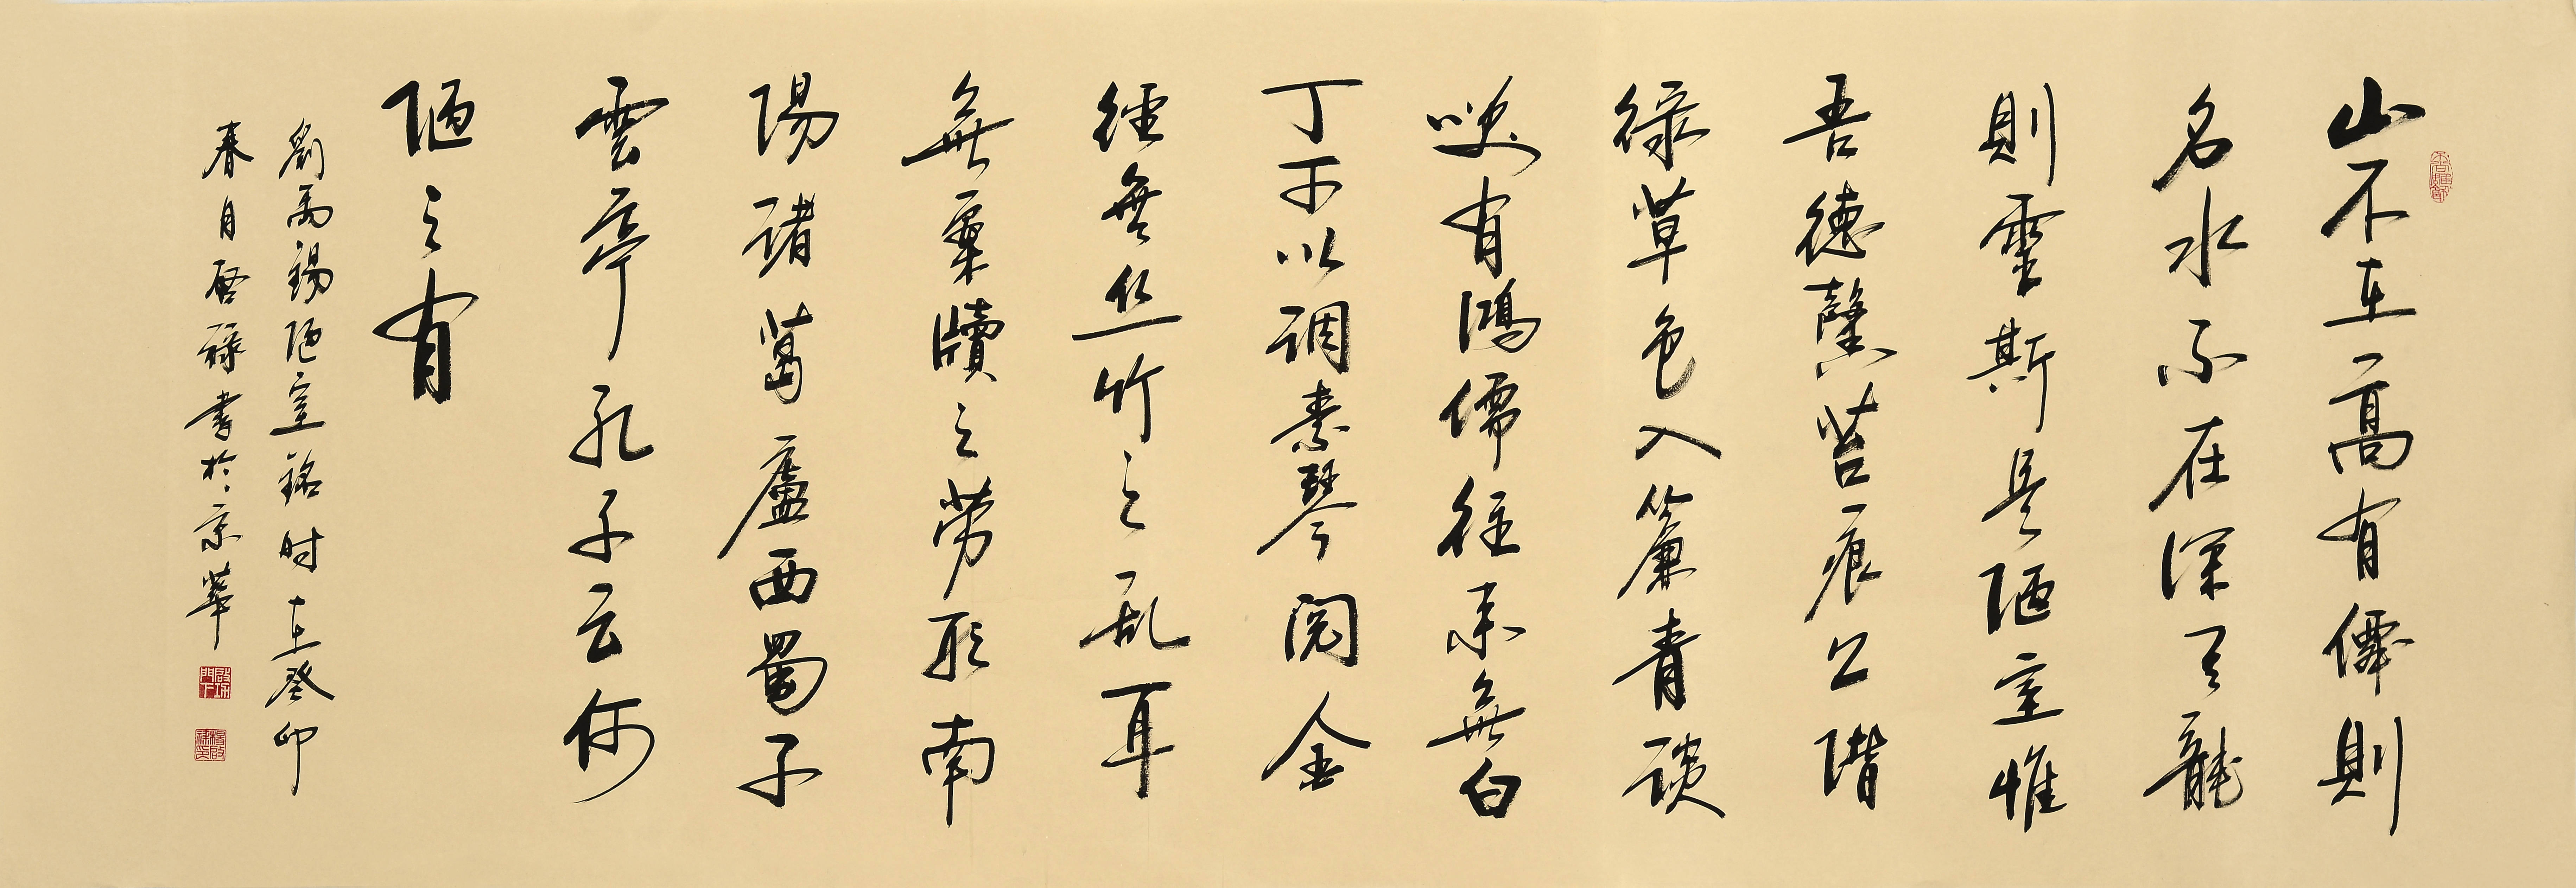 山不在高有僊則
名水不在深有龍
則靈斯是陋室惟
吾德馨苔痕上階
緑草色入簾青談
咲有鴻儒往来無白
丁可以调素琴閱金
經無丝竹之乱耳
無案牘之劳形南
陽諸葛廬西蜀子
雲亭孔子云何
陋之有
劉禹錫陋室銘时在癸卯
春月啓禄書於京華
啟功門下